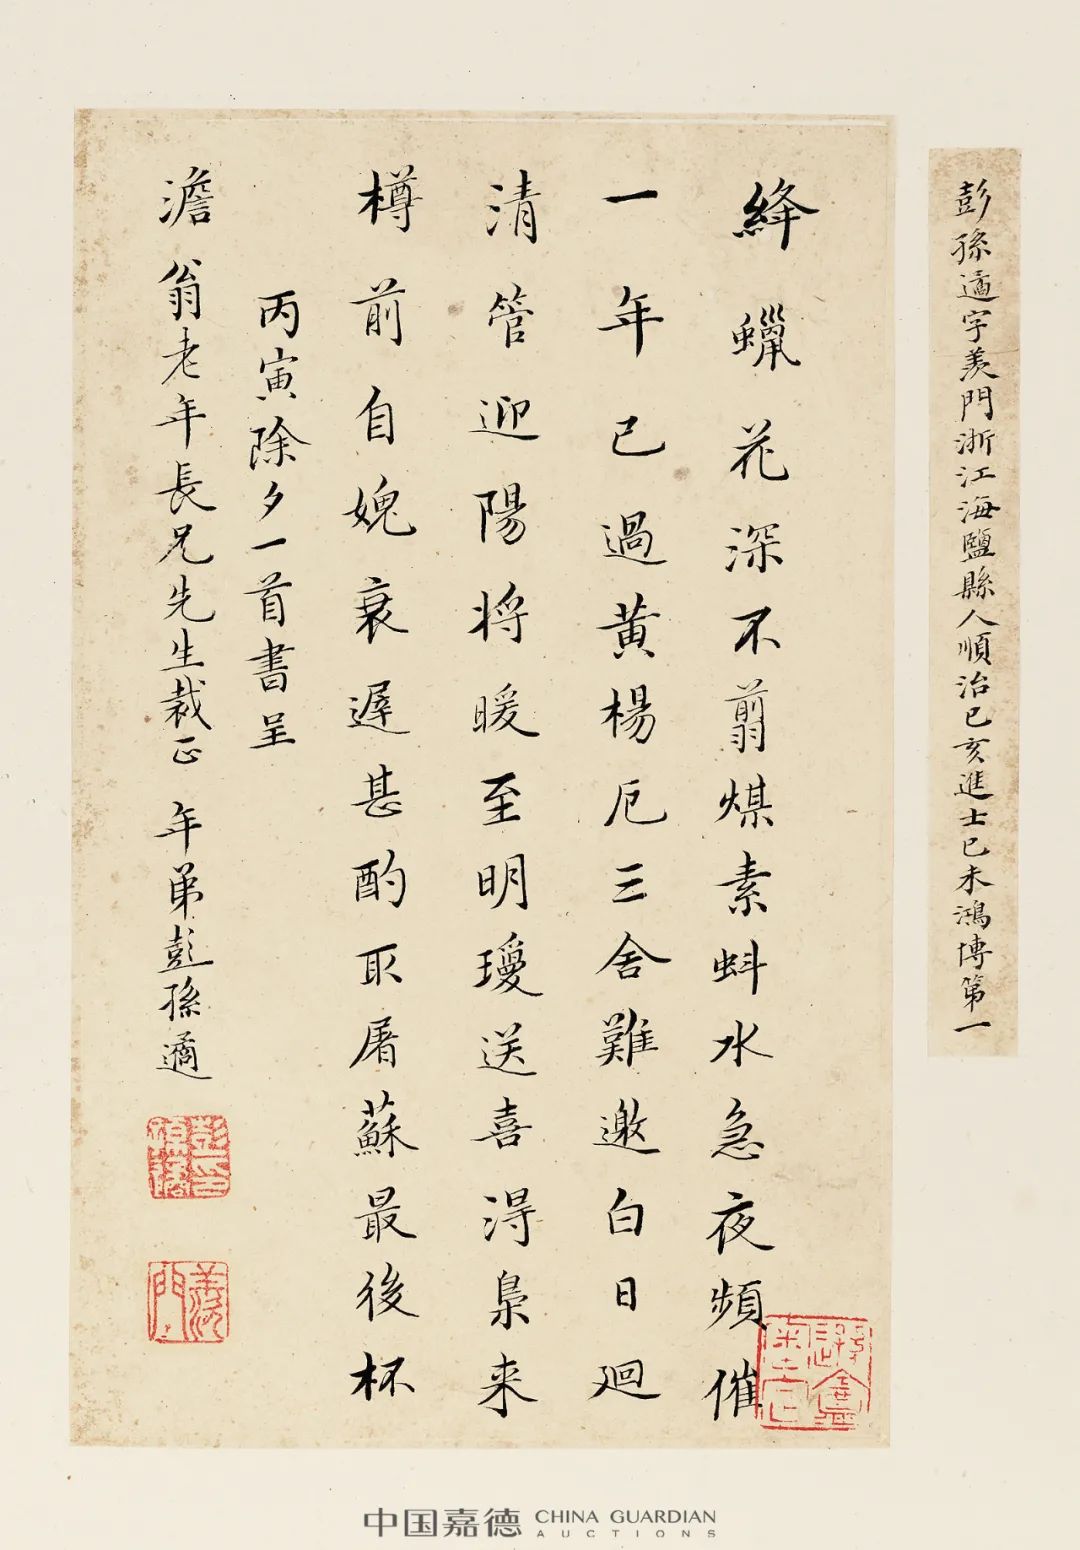 彭孫遹字羨門浙江海鹽縣人順治己亥進士己未鴻博第一
絳蠟花深不翦煤素蚪水急夜頻催
一年已過黃楊厄三舍難邀白日迴
清管迎陽將暖至明璦送喜淂梟来
樽前自媿衰遲甚酌取屠蘇最後杯
丙寅除夕一首書呈
澹翁老年長兄先生裁正 年弟彭孫遹
彭孫遹印
羨門
中国嘉德 CHINA GUARDIAN
AUCTIONS